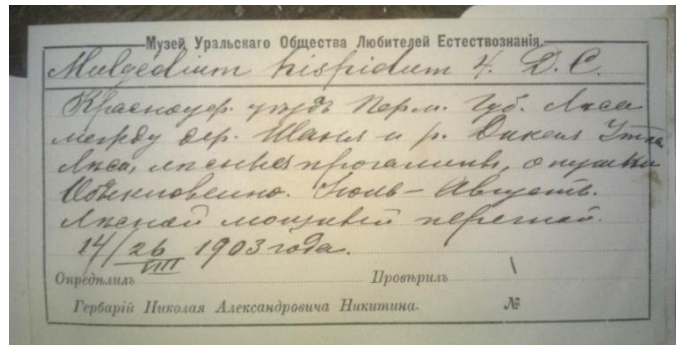 Музей Уральскаго Общества Любителей Естествознанія.
Mulgedium hispidum 4. D. C.
Красноуф. уѣздъ Перм. Губ. Лѣса
между дер. Шаня и р. Дикая Утка
Лѣса, лѣсныя прогалины, опушки
Обыкновенно. Іюль – Августъ.
Лѣсной мощный перегной.
14/26 VIII 1903 года.
Опредѣлилъ Провѣрилъ
Гербарій Николая Александровича Никитина. №